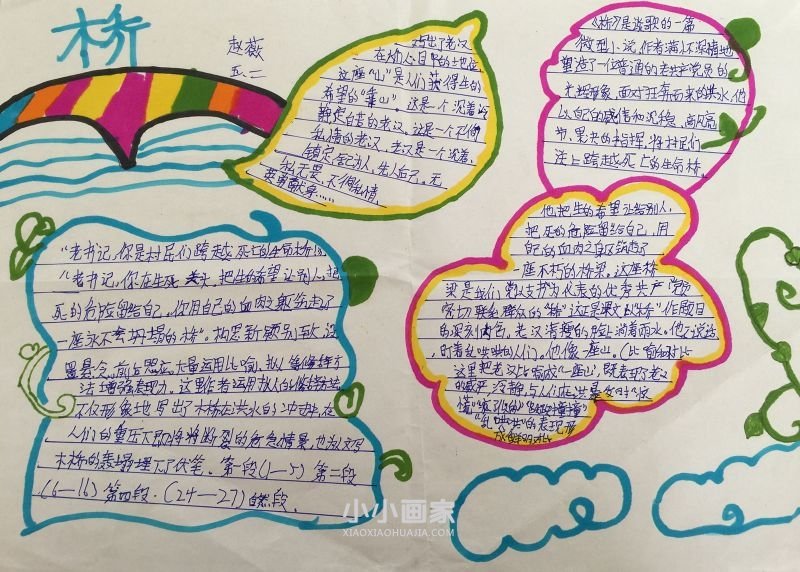 桥
赵薇
五.二
指出了老汉
在人们心目中的土地位
这座"山"是人们获得生的
希望的"靠山"这是一个沉着冷
静定自若的老汉,这是一个不徇
私情的老汉,老汉是一个沉着,
镇定,舍己为人,先人后己,无
私无畏,不徇私情,
英勇献身……
《桥》是谈歌的一篇
微型小说,作者满怀深情地
塑造了一位普通的老共产党员的
光辉形象,面对狂奔而来的洪水,他
以自己的威信和沉稳、高风亮
节、果决的指挥,将村民们
送上跨越死亡的生命桥。
他把生的希望让给别人,
把死的危险留给自己,用
自己的血肉之躯筑起了
一座不朽的桥梁。这座桥
梁是我们党以支书为代表的优秀共产党
密切联系群众的"桥"这正是课文以"桥"作题目
的深刻内含。老汉清瘦的脸上淌着雨水。他不说话
盯着乱哄哄的人们。他像一座山。(比喻和对比
这里把老汉比喻成"一座山",既表现了老汉
的威严,沉静,与人们在洪暴发时"惊
慌""疯了似的""跌跌撞撞"
"乱哄哄"的表现形
成鲜明对比
"老书记,你是村民们跨越死亡的生命桥!"
"老书记,你在生死关头,把生的希望让别人,把
死的危险留给自己,你用自己的血肉之躯筑起了
一座永不会坍塌的桥"。构思新颖别致,设
置悬念,前后照应,大量运用比喻、拟人等修辞方
法增强表现力。这里作者运用拟人的修辞方法
不仅形象地写出了木桥在洪水的冲击,在
人们的重压下即将断裂的危急情景,也为文写
木桥的轰塌埋下了伏笔。第一段(1—5)第二段
(6—16)第四段.(24—27)自然段。
小小画家
XIAOXIAOHUAJIA.COM